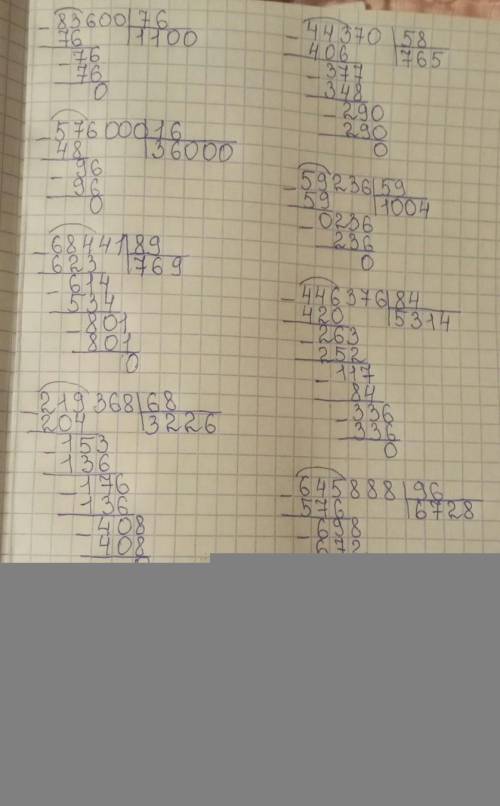 - 83600 | 76
76 | 1100
- 76
76
0
- 576000 | 16
48 | 36000
- 96
96
0
- 68441 | 89
623 | 769
- 614
534
- 801
801
0
- 219368 | 68
204 | 3226
- 153
136
- 176
136
- 408
408
0
- 44370 | 58
406 | 765
- 377
348
- 290
290
0
- 59236 | 59
59 | 1004
- 0236
236
0
- 446376 | 84
420 | 5314
- 263
252
- 117
84
- 336
336
0
- 645888 | 96
576 | 6728
- 698
672